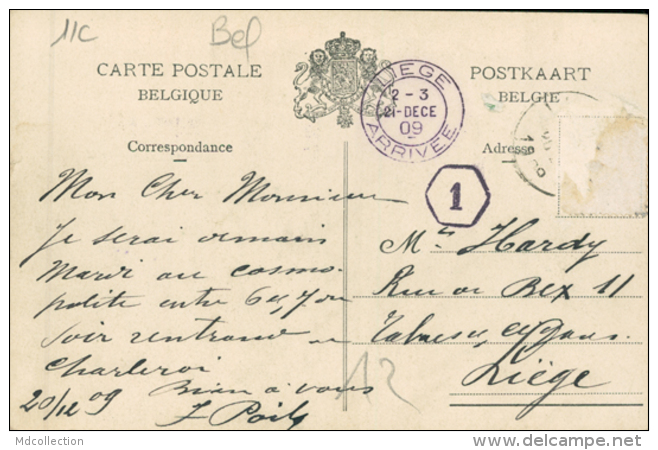 11c
Bel
CARTE POSTALE
BELGIQUE
POSTKAART
BELGIE
LIEGE
2-3
21-DECE
09
ARRIVÉE
Correspondance
Adresse
1
Mon Cher Monsieur
Je serai demain
Mardi au cosmo-
polite entre 6 et 7 du
soir rentrant de
Charleroi
Bien à vous
20/12 09
Mr Hardy
Rue de Bex 11
Liège
12
Mdcollection
delcampe.net